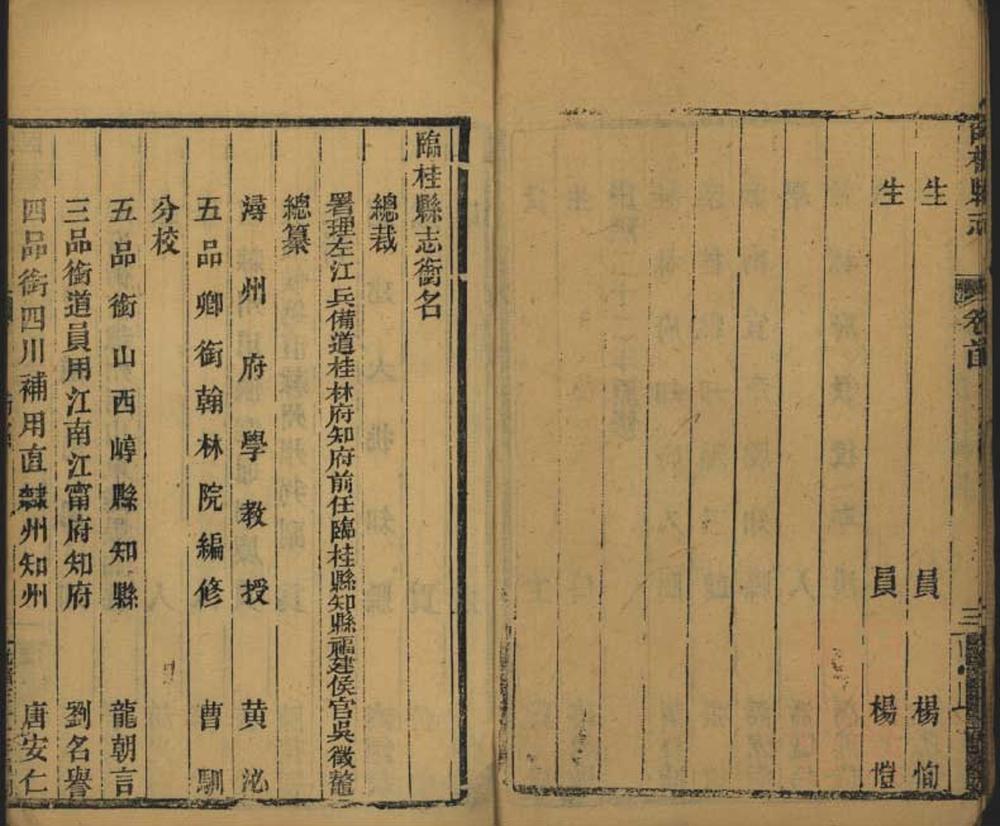 臨桂縣志 卷首 三
生員楊恂
生員楊愷
臨桂縣志銜名
總裁
署理左江兵備道桂林府知府前任臨桂縣知縣福建侯官吳徵鰲
總纂
潯州府學教授黃泌
五品卿銜翰林院編修曹馴
分校
五品銜山西崞縣知縣龍朝言
三品銜道員用江南江甯府知府劉名譽
四品銜四川補用直隸州知州唐安仁